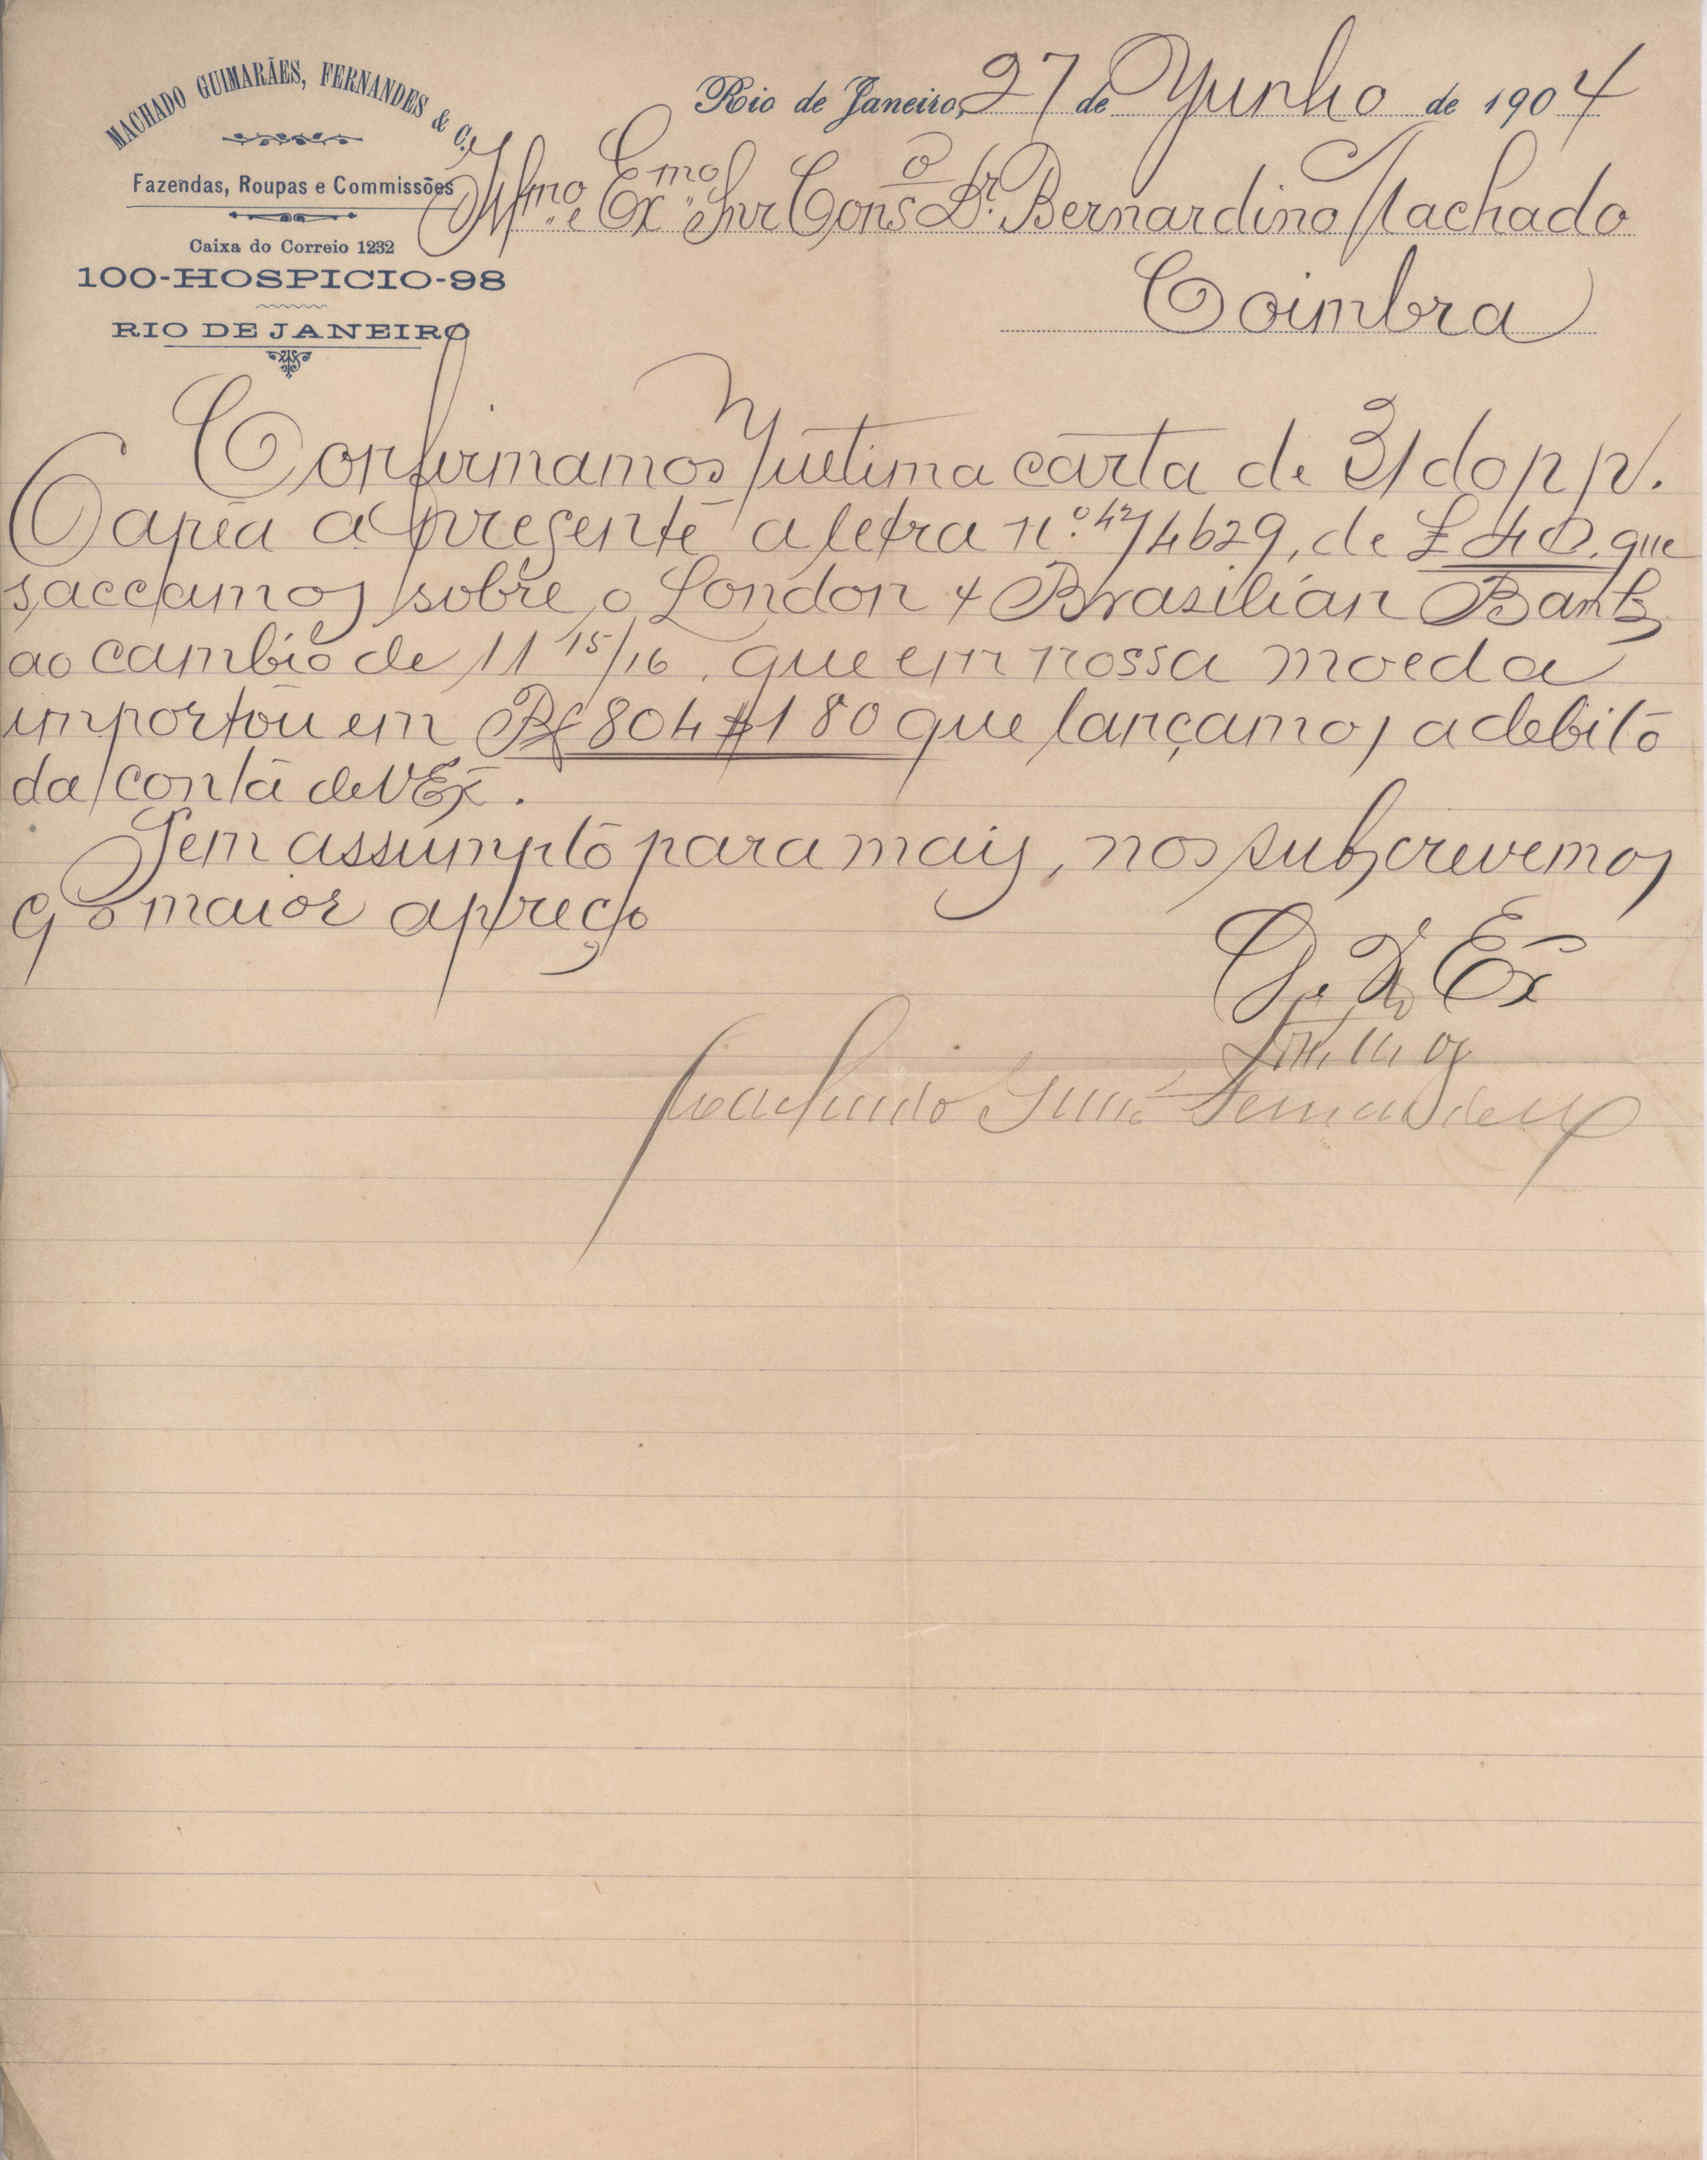 MACHADO GUIMARÃES, FERNANDES & C.
Fazendas, Roupas e Commissões
Caixa do Correio 1232
100-HOSPICIO-98
RIO DE JANEIRO
Rio de Janeiro, 27 de Junho de 1904
Illmo e Exmo Snr Conso Dr. Bernardino Machado
Coimbra
Confirmamos n/ ultima carta de 31 do p p.
Capêa a presente a letra n.º 42/4629, de £ 40. que
saccamos sobre o London & Brasilian Bank
ao cambio de 11 15/16. que em nossa moeda
importou em Rs 804$180 que lançamos a debito
da conta de V Ex.
Sem assumpto para mais, nos subscrevemos
c/ o maior apreço
De V Ex
Machado Guies Fernandes